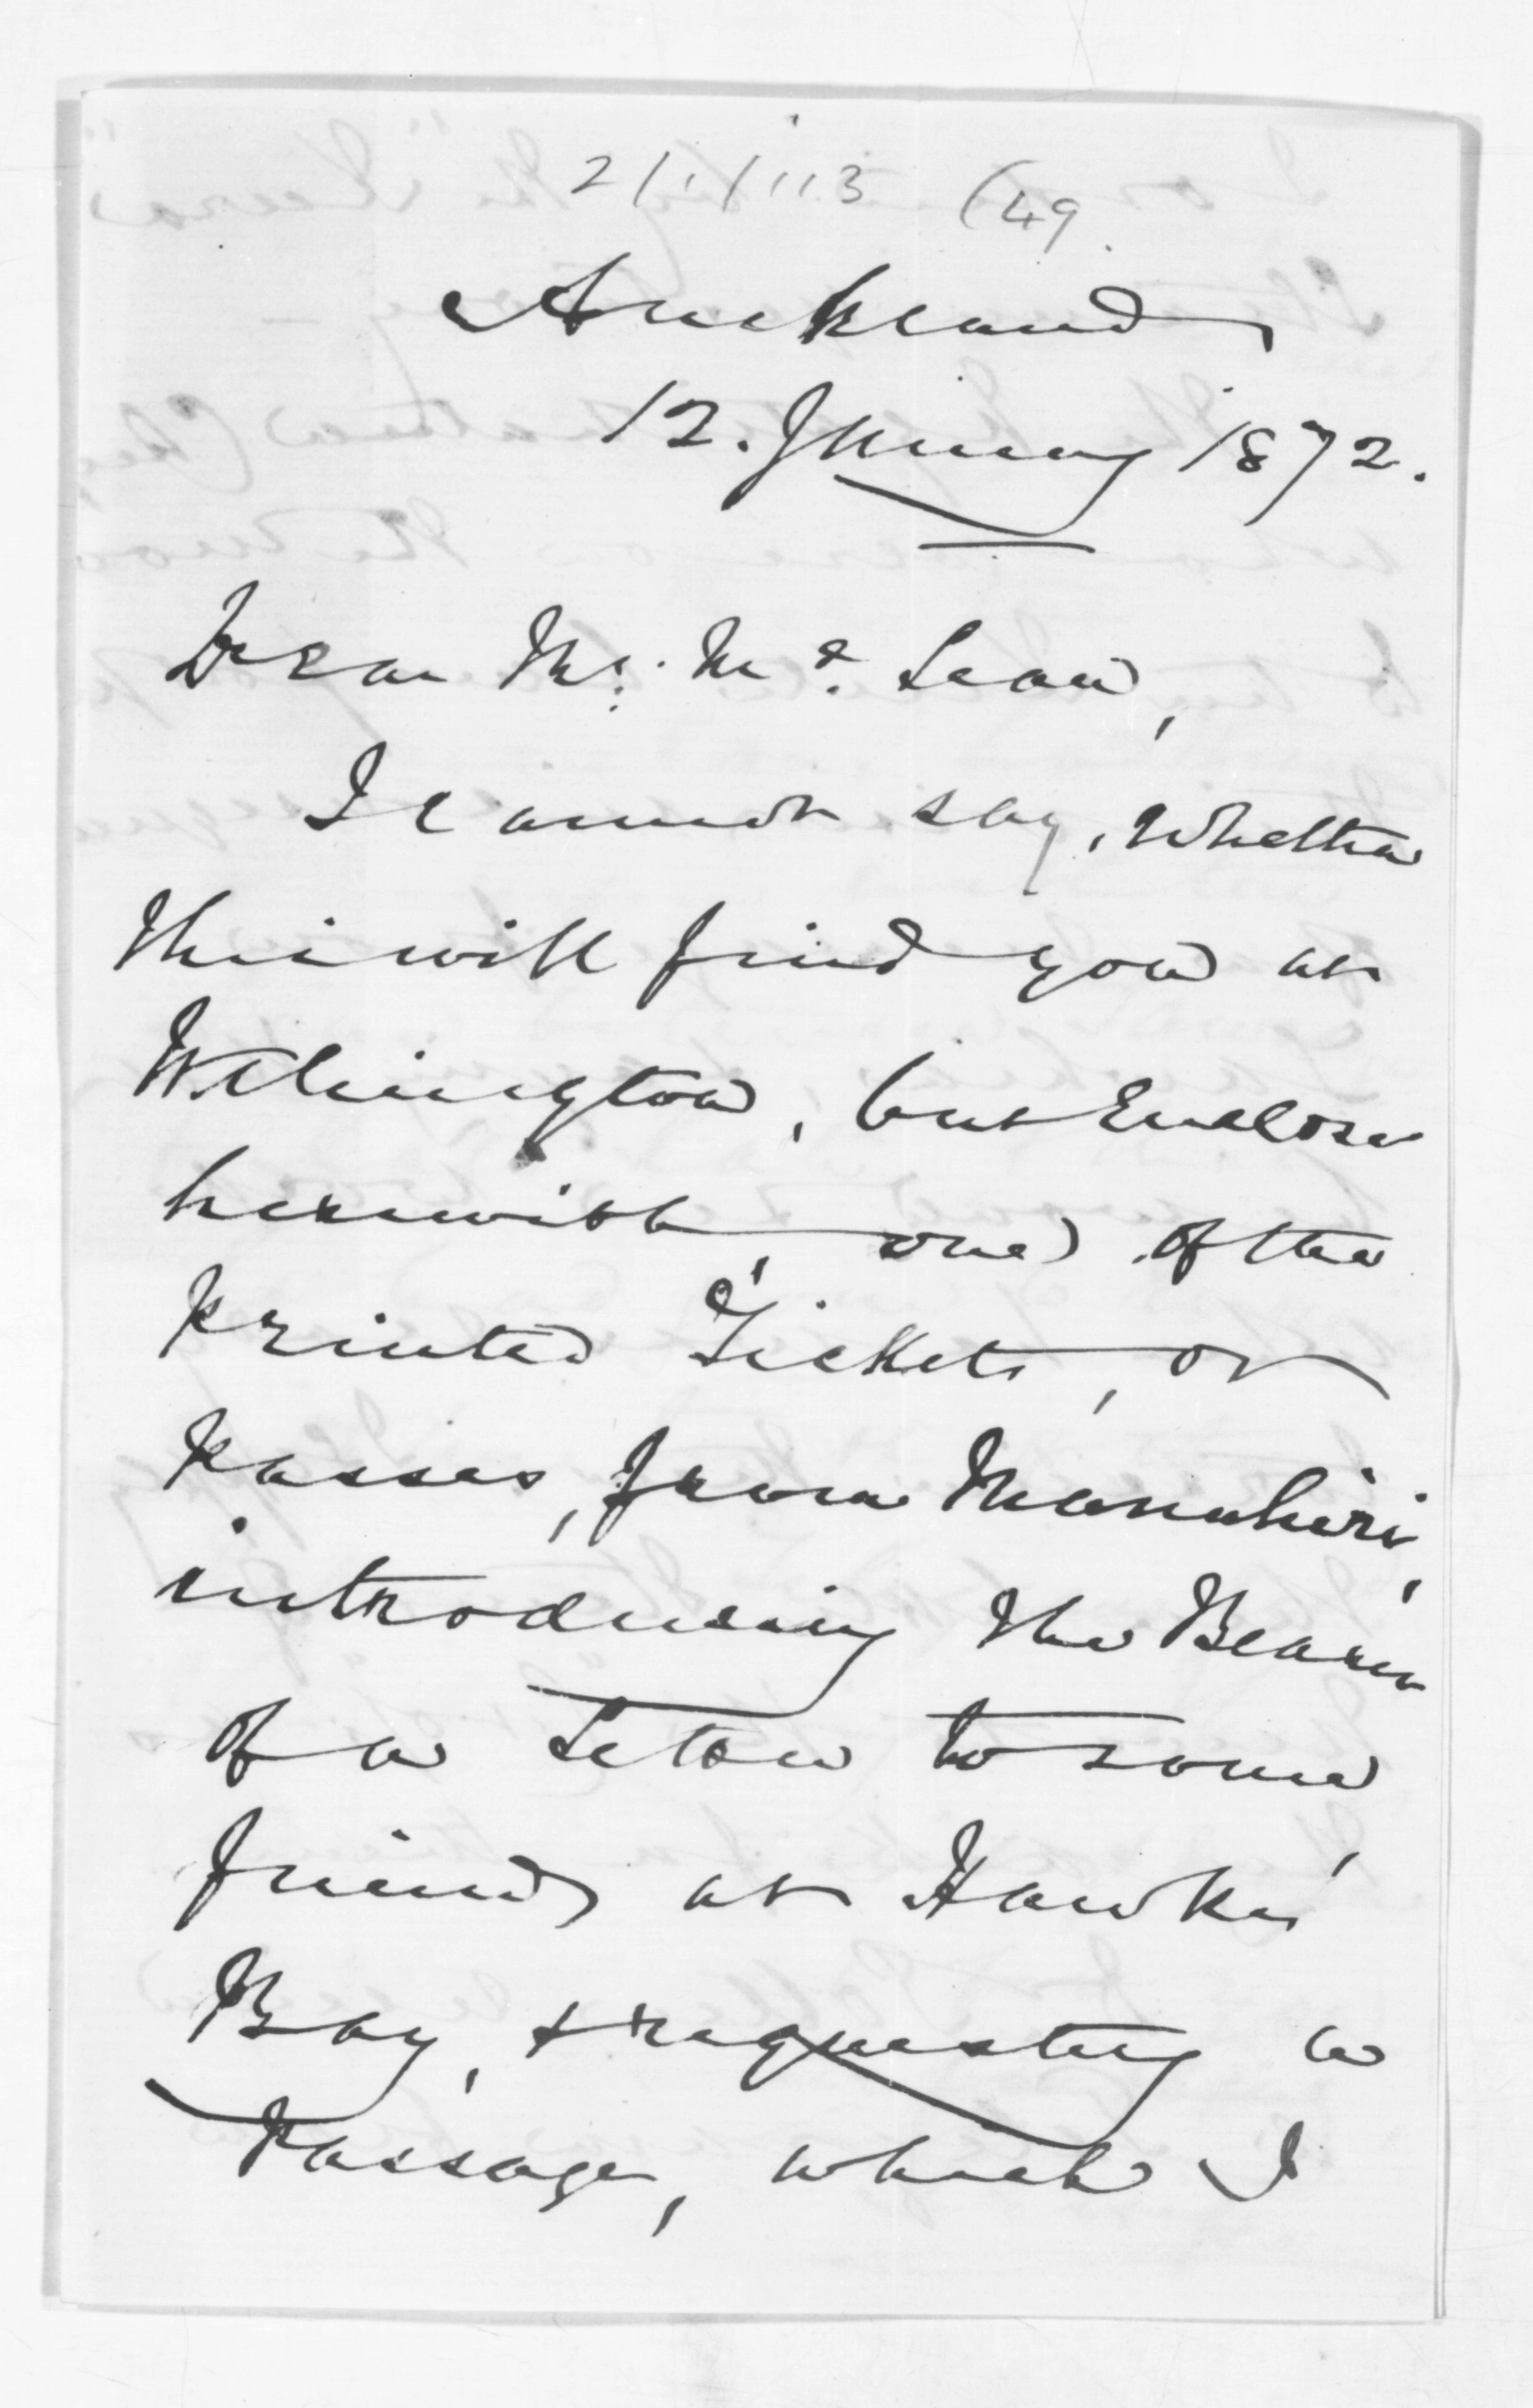 2/1/113 (49.
Auckland,
12. January 1872.
Dear Mr. McLean,
I cannot say, whether
this will find you at
Wellington, but Enclose
herewith, one of the
printed Tickets, or
passes, from Manuhiri,
introducing the Bearer
of a Letter to some
friends at Hawke's
Bay, & requesting a
passage, which I